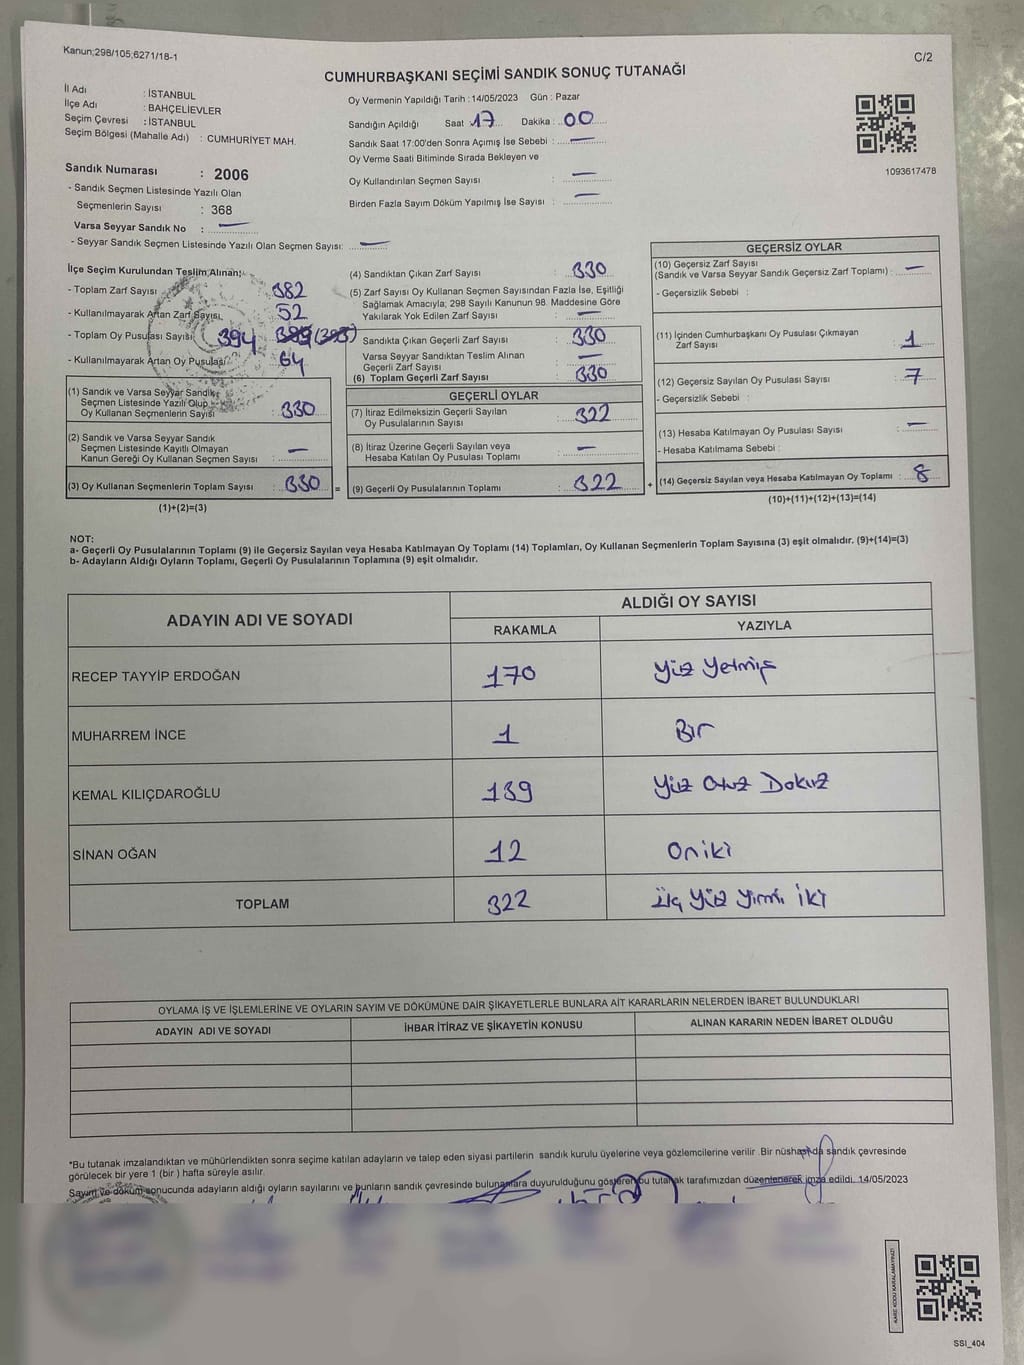 Kanun;298/105,6271/18-1
C/2
CUMHURBAŞKANI SEÇİMİ SANDIK SONUÇ TUTANAĞI
İl Adı : İSTANBUL
İlçe Adı : BAHÇELİEVLER
Seçim Çevresi : İSTANBUL
Seçim Bölgesi (Mahalle Adı) : CUMHURİYET MAH.
Oy Vermenin Yapıldığı Tarih : 14/05/2023 Gün : Pazar
Sandığın Açıldığı Saat 17 Dakika : 00
Sandık Saat 17:00'den Sonra Açımış İse Sebebi : —
Oy Verme Saati Bitiminde Sırada Bekleyen ve
Oy Kullandırılan Seçmen Sayısı : —
Birden Fazla Sayım Döküm Yapılmış İse Sayısı : —
1093617478
Sandık Numarası : 2006
- Sandık Seçmen Listesinde Yazılı Olan
Seçmenlerin Sayısı : 368
Varsa Seyyar Sandık No : —
- Seyyar Sandık Seçmen Listesinde Yazılı Olan Seçmen Sayısı: —
İlçe Seçim Kurulundan Teslim Alınan;
- Toplam Zarf Sayısı 382
- Kullanılmayarak Artan Zarf Sayısı 52
- Toplam Oy Pusulası Sayısı 394
- Kullanılmayarak Artan Oy Pusulası 64
(1) Sandık ve Varsa Seyyar Sandık
Seçmen Listesinde Yazılı Olup
Oy Kullanan Seçmenlerin Sayısı : 330
(2) Sandık ve Varsa Seyyar Sandık
Seçmen Listesinde Kayıtlı Olmayan
Kanun Gereği Oy Kullanan Seçmen Sayısı : —
(3) Oy Kullanan Seçmenlerin Toplam Sayısı : 330
(1)+(2)=(3)
=
(4) Sandıktan Çıkan Zarf Sayısı : 330
(5) Zarf Sayısı Oy Kullanan Seçmen Sayısından Fazla İse, Eşitliği
Sağlamak Amacıyla; 298 Sayılı Kanunun 98. Maddesine Göre
Yakılarak Yok Edilen Zarf Sayısı : —
Sandıkta Çıkan Geçerli Zarf Sayısı : 330
Varsa Seyyar Sandıktan Teslim Alınan
Geçerli Zarf Sayısı : —
(6) Toplam Geçerli Zarf Sayısı : 330
GEÇERLİ OYLAR
(7) İtiraz Edilmeksizin Geçerli Sayılan
Oy Pusulalarının Sayısı : 322
(8) İtiraz Üzerine Geçerli Sayılan veya
Hesaba Katılan Oy Pusulası Toplamı : —
(9) Geçerli Oy Pusulalarının Toplamı : 322
+
GEÇERSİZ OYLAR
(10) Geçersiz Zarf Sayısı
(Sandık ve Varsa Seyyar Sandık Geçersiz Zarf Toplamı) : —
- Geçersizlik Sebebi :
(11) İçinden Cumhurbaşkanı Oy Pusulası Çıkmayan
Zarf Sayısı : 1
(12) Geçersiz Sayılan Oy Pusulası Sayısı : 7
- Geçersizlik Sebebi :
(13) Hesaba Katılmayan Oy Pusulası Sayısı : —
- Hesaba Katılmama Sebebi :
(14) Geçersiz Sayılan veya Hesaba Katılmayan Oy Toplamı : 8
(10)+(11)+(12)+(13)=(14)
NOT:
a- Geçerli Oy Pusulalarının Toplamı (9) ile Geçersiz Sayılan veya Hesaba Katılmayan Oy Toplamı (14) Toplamları, Oy Kullanan Seçmenlerin Toplam Sayısına (3) eşit olmalıdır. (9)+(14)=(3)
b- Adayların Aldığı Oyların Toplamı, Geçerli Oy Pusulalarının Toplamına (9) eşit olmalıdır.
ADAYIN ADI VE SOYADI
ALDIĞI OY SAYISI
RAKAMLA YAZIYLA
RECEP TAYYİP ERDOĞAN 170 Yüz Yetmiş
MUHARREM İNCE 1 Bir
KEMAL KILIÇDAROĞLU 139 Yüz Otuz Dokuz
SİNAN OĞAN 12 Oniki
TOPLAM 322 Üç Yüz Yirmi İki
OYLAMA İŞ VE İŞLEMLERİNE VE OYLARIN SAYIM VE DÖKÜMÜNE DAİR ŞİKAYETLERLE BUNLARA AİT KARARLARIN NELERDEN İBARET BULUNDUKLARI
ADAYIN ADI VE SOYADI İHBAR İTİRAZ VE ŞİKAYETİN KONUSU ALINAN KARARIN NEDEN İBARET OLDUĞU
*Bu tutanak imzalandıktan ve mühürlendikten sonra seçime katılan adayların ve talep eden siyasi partilerin sandık kurulu üyelerine veya gözlemcilerine verilir. Bir nüshası da sandık çevresinde
görülecek bir yere 1 (bir ) hafta süreyle asılır.
Sayım ve döküm sonucunda adayların aldığı oyların sayılarını ve bunların sandık çevresinde bulunanlara duyurulduğunu gösteren bu tutanak tarafımızdan düzenlenerek imza edildi. 14/05/2023
KARE KODU KARALAMAYINIZ!
SSI_404